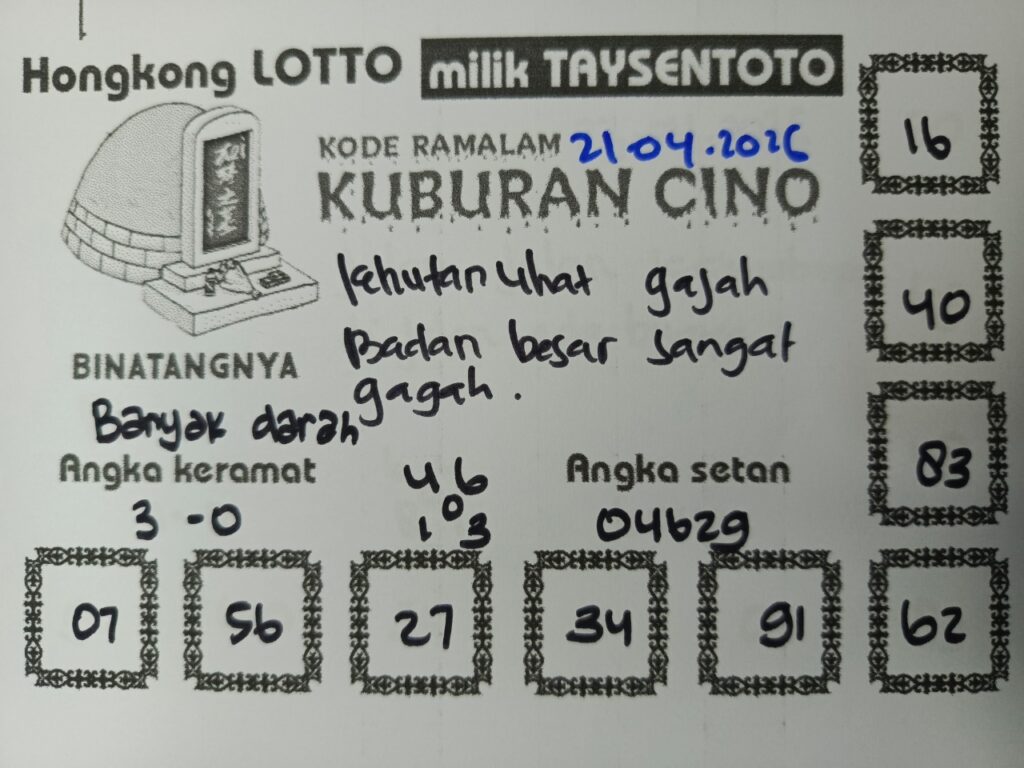 Hongkong LOTTO milik TAYSENTOTO
KODE RAMALAM 21.04.2026
KUBURAN CINO
kehutan lihat gajah
Badan besar sangat
gagah.
BINATANGNYA
Banyak darah
Angka keramat
3 - 0
46
0
1 3
Angka setan
04629
16
40
83
07 56 27 34 91 62